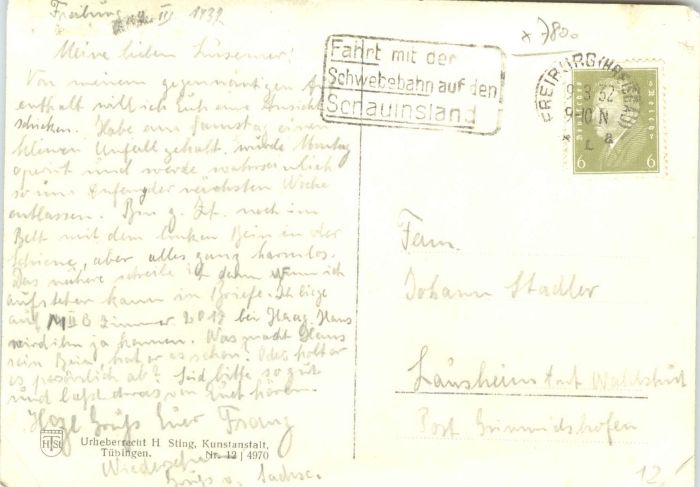 Freiburg III 1932
Meine lieben
Von meinem gegenwärtigen
enthalt will ich Euch eine Ansicht
schicken. Habe am Samstag einen
kleinen Unfall gehabt, wurde Montag
operirt und werde wahrscheinlich
so um Anfang der nächsten Woche
entlassen. Bin z. Zt. noch im
Bett mit dem linken Bein in der
Schiene, aber alles ganz harmlos.
Das nähere schreibe ich dann wenn ich
aufstehen kann im Briefe. Ich liege
auf Zimmer bei Haag. Hans
wird ihn ja kennen. Was macht Hans
sein Bein, hat er es schon. Oder holt er
es persönlich ab? Seid bitte so gut
und laßt etwas von Euch hören.
Herzl Gruß Euer Franz
Urheberrecht H Sting, Kunstanstalt,
Tübingen. Nr. 12 | 4970
Fahrt mit der
Schwebebahn auf den
Schauinsland
FREIBURG (BREISGAU)
9.3.32
9-10 N
6 6
Fam.
Johann Stadler
Lausheim Amt Waldshut
Post Grimmelshofen
12.-